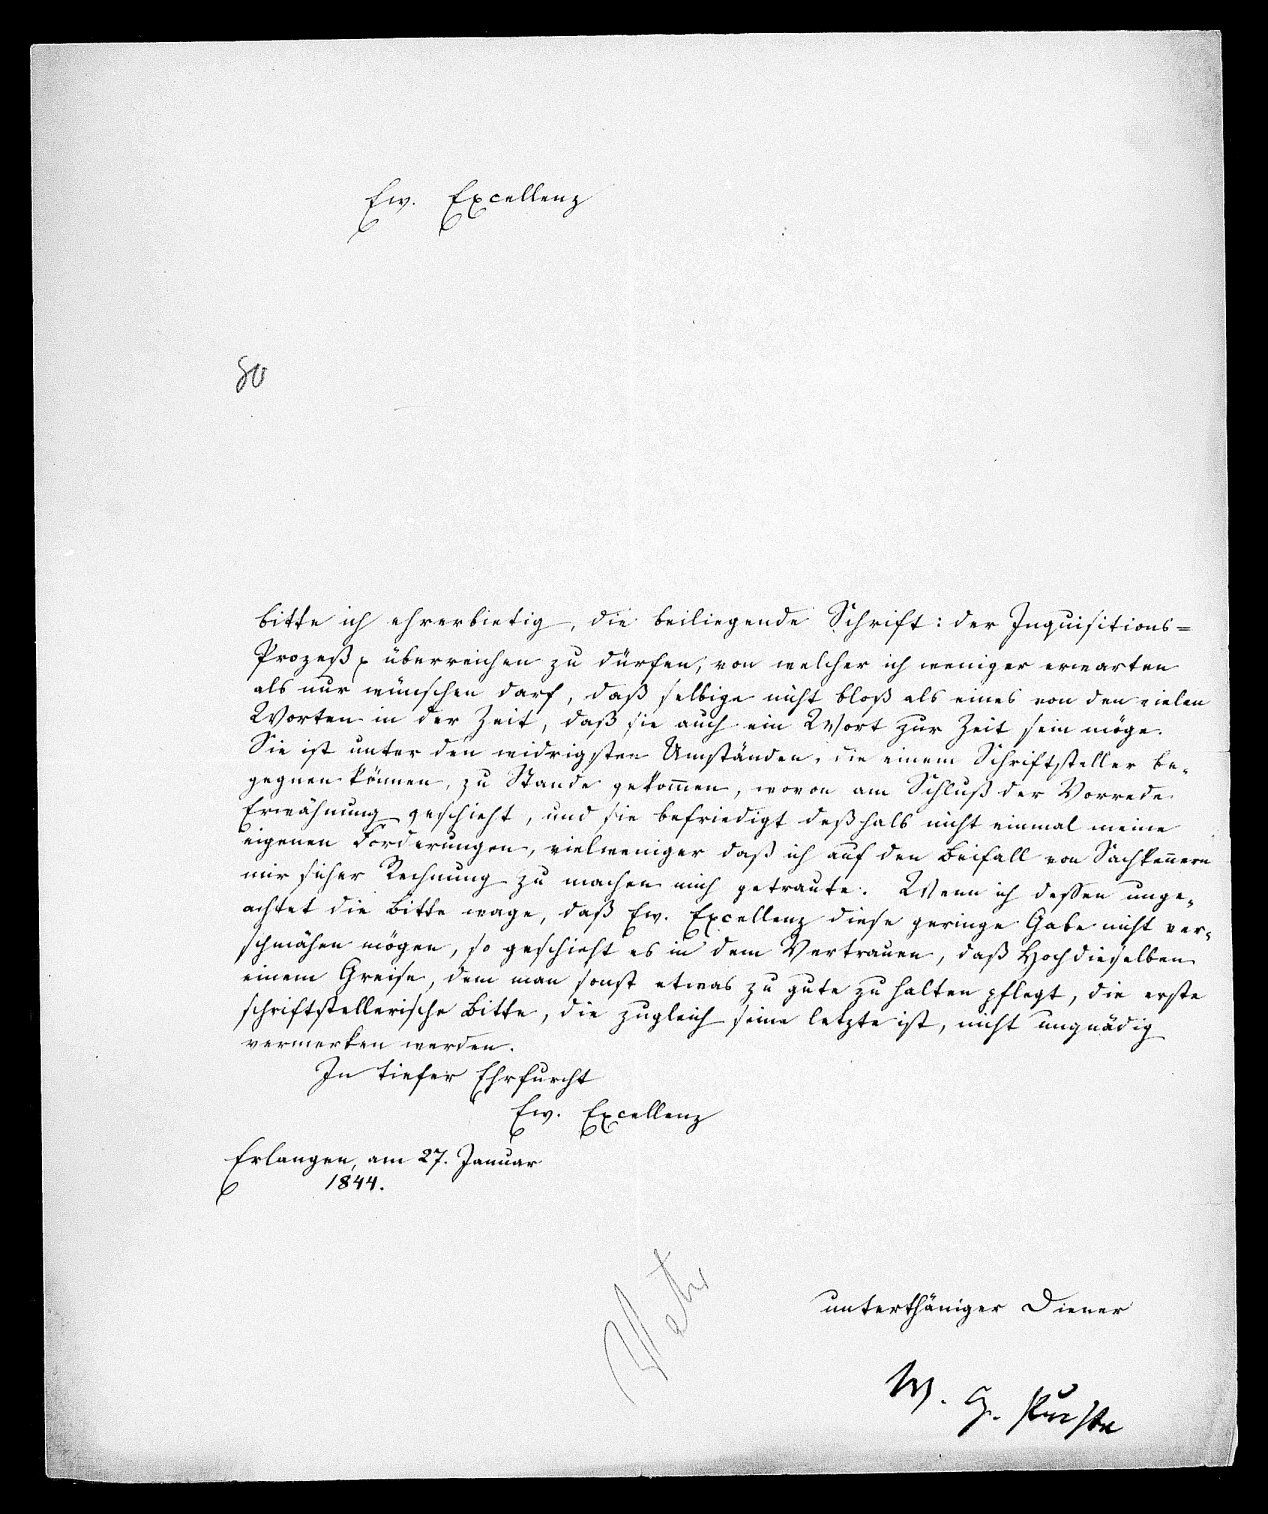 Ew. Excellenz
80
bitte ich ehrerbietig, die beiliegende Schrift: der Inquisitions=
Prozeß überreichen zu dürfen, von welcher ich weniger erwarten
als nur wünschen darf, daß selbige nicht bloß als eines von den vielen
Worten in der Zeit, daß sie auch ein Wort zur Zeit sein möge.
Sie ist unter den widrigsten Umständen, die einem Schriftsteller be-
gegnen können, zu Stande gekom̄en, wovon am Schluß der Vorrede
Erwähnung geschieht, und sie befriedigt deßhalb nicht einmal meine
eigenen Forderungen, vielweniger daß ich auf den Beifall von Sachken̄ern
mir sicher Rechnung zu machen mich getraute. Wenn ich dessen unge-
achtet die Bitte wage, daß Ew. Excellenz diese geringe Gabe nicht ver-
schmähen mögen, so geschieht es in dem Vertrauen, daß Hochdieselben
einem Greise, dem man sonst etwas zu gute zu halten pflegt, die erste
schriftstellerische Bitte, die zugleich seine letzte ist, nicht ungnädig
vermerken werden.
In tiefer Ehrfurcht
Ew. Excellenz
Erlangen, am 27. Januar
1844.
unterthäniger Diener
W. G.